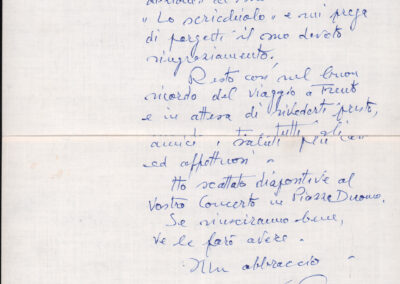 "Lo scricciolo" e mi prega
di porgerti il suo devoto
ringraziamento.
Resto così nel buon
ricordo del viaggio a Trento
e in attesa di rivederti presto,
tutti gli
amici, i saluti più cari
ed affettuosi.
Ho scattato diapositive al
Vostro Concerto in Piazza Duomo.
Se riusciranno bene,
ve le farò avere.
Un abbraccio